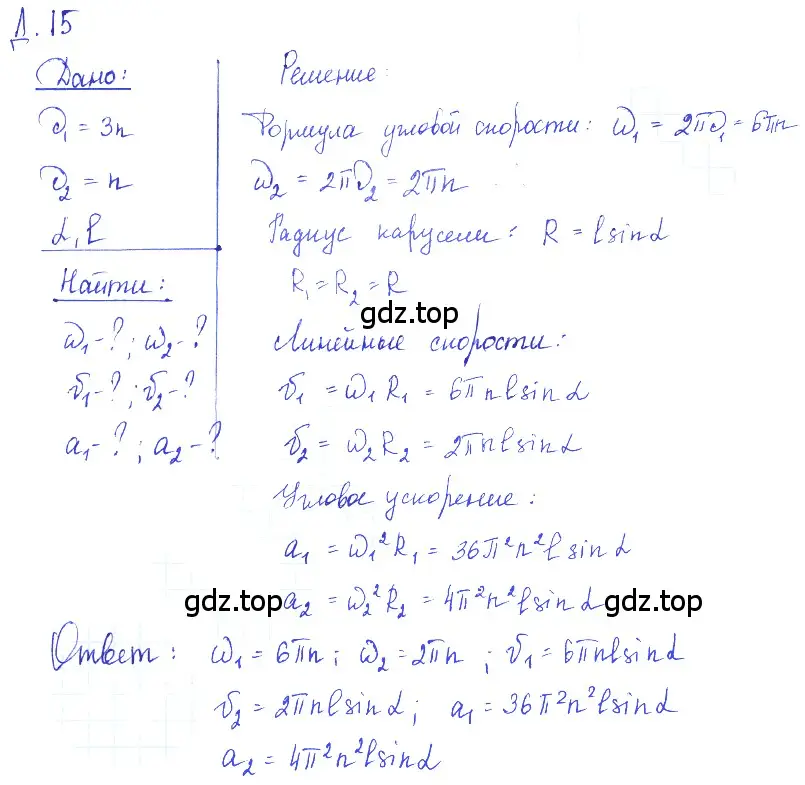 Д. 15
Дано:
ν₁ = 3n
ν₂ = n
α, l
Найти:
ω₁ - ? ; ω₂ - ?
υ₁ - ? ; υ₂ - ?
a₁ - ? ; a₂ - ?
Решение:
Формула угловой скорости: ω₁ = 2πν₁ = 6πn
ω₂ = 2πν₂ = 2πn
Радиус карусели: R = l sinα
R₁ = R₂ = R
gdz.top
Линейные скорости:
υ₁ = ω₁R₁ = 6πnl sinα
υ₂ = ω₂R₂ = 2πnl sinα
Угловое ускорение:
a₁ = ω₁²R₁ = 36π²n²l sinα
gdz.top a₂ = ω₂²R₂ = 4π²n²l sinα gdz.top
Ответ: ω₁ = 6πn; ω₂ = 2πn ; υ₁ = 6πnl sinα
υ₂ = 2πnl sinα; a₁ = 36π²n²l sinα
a₂ = 4π²n²l sinα